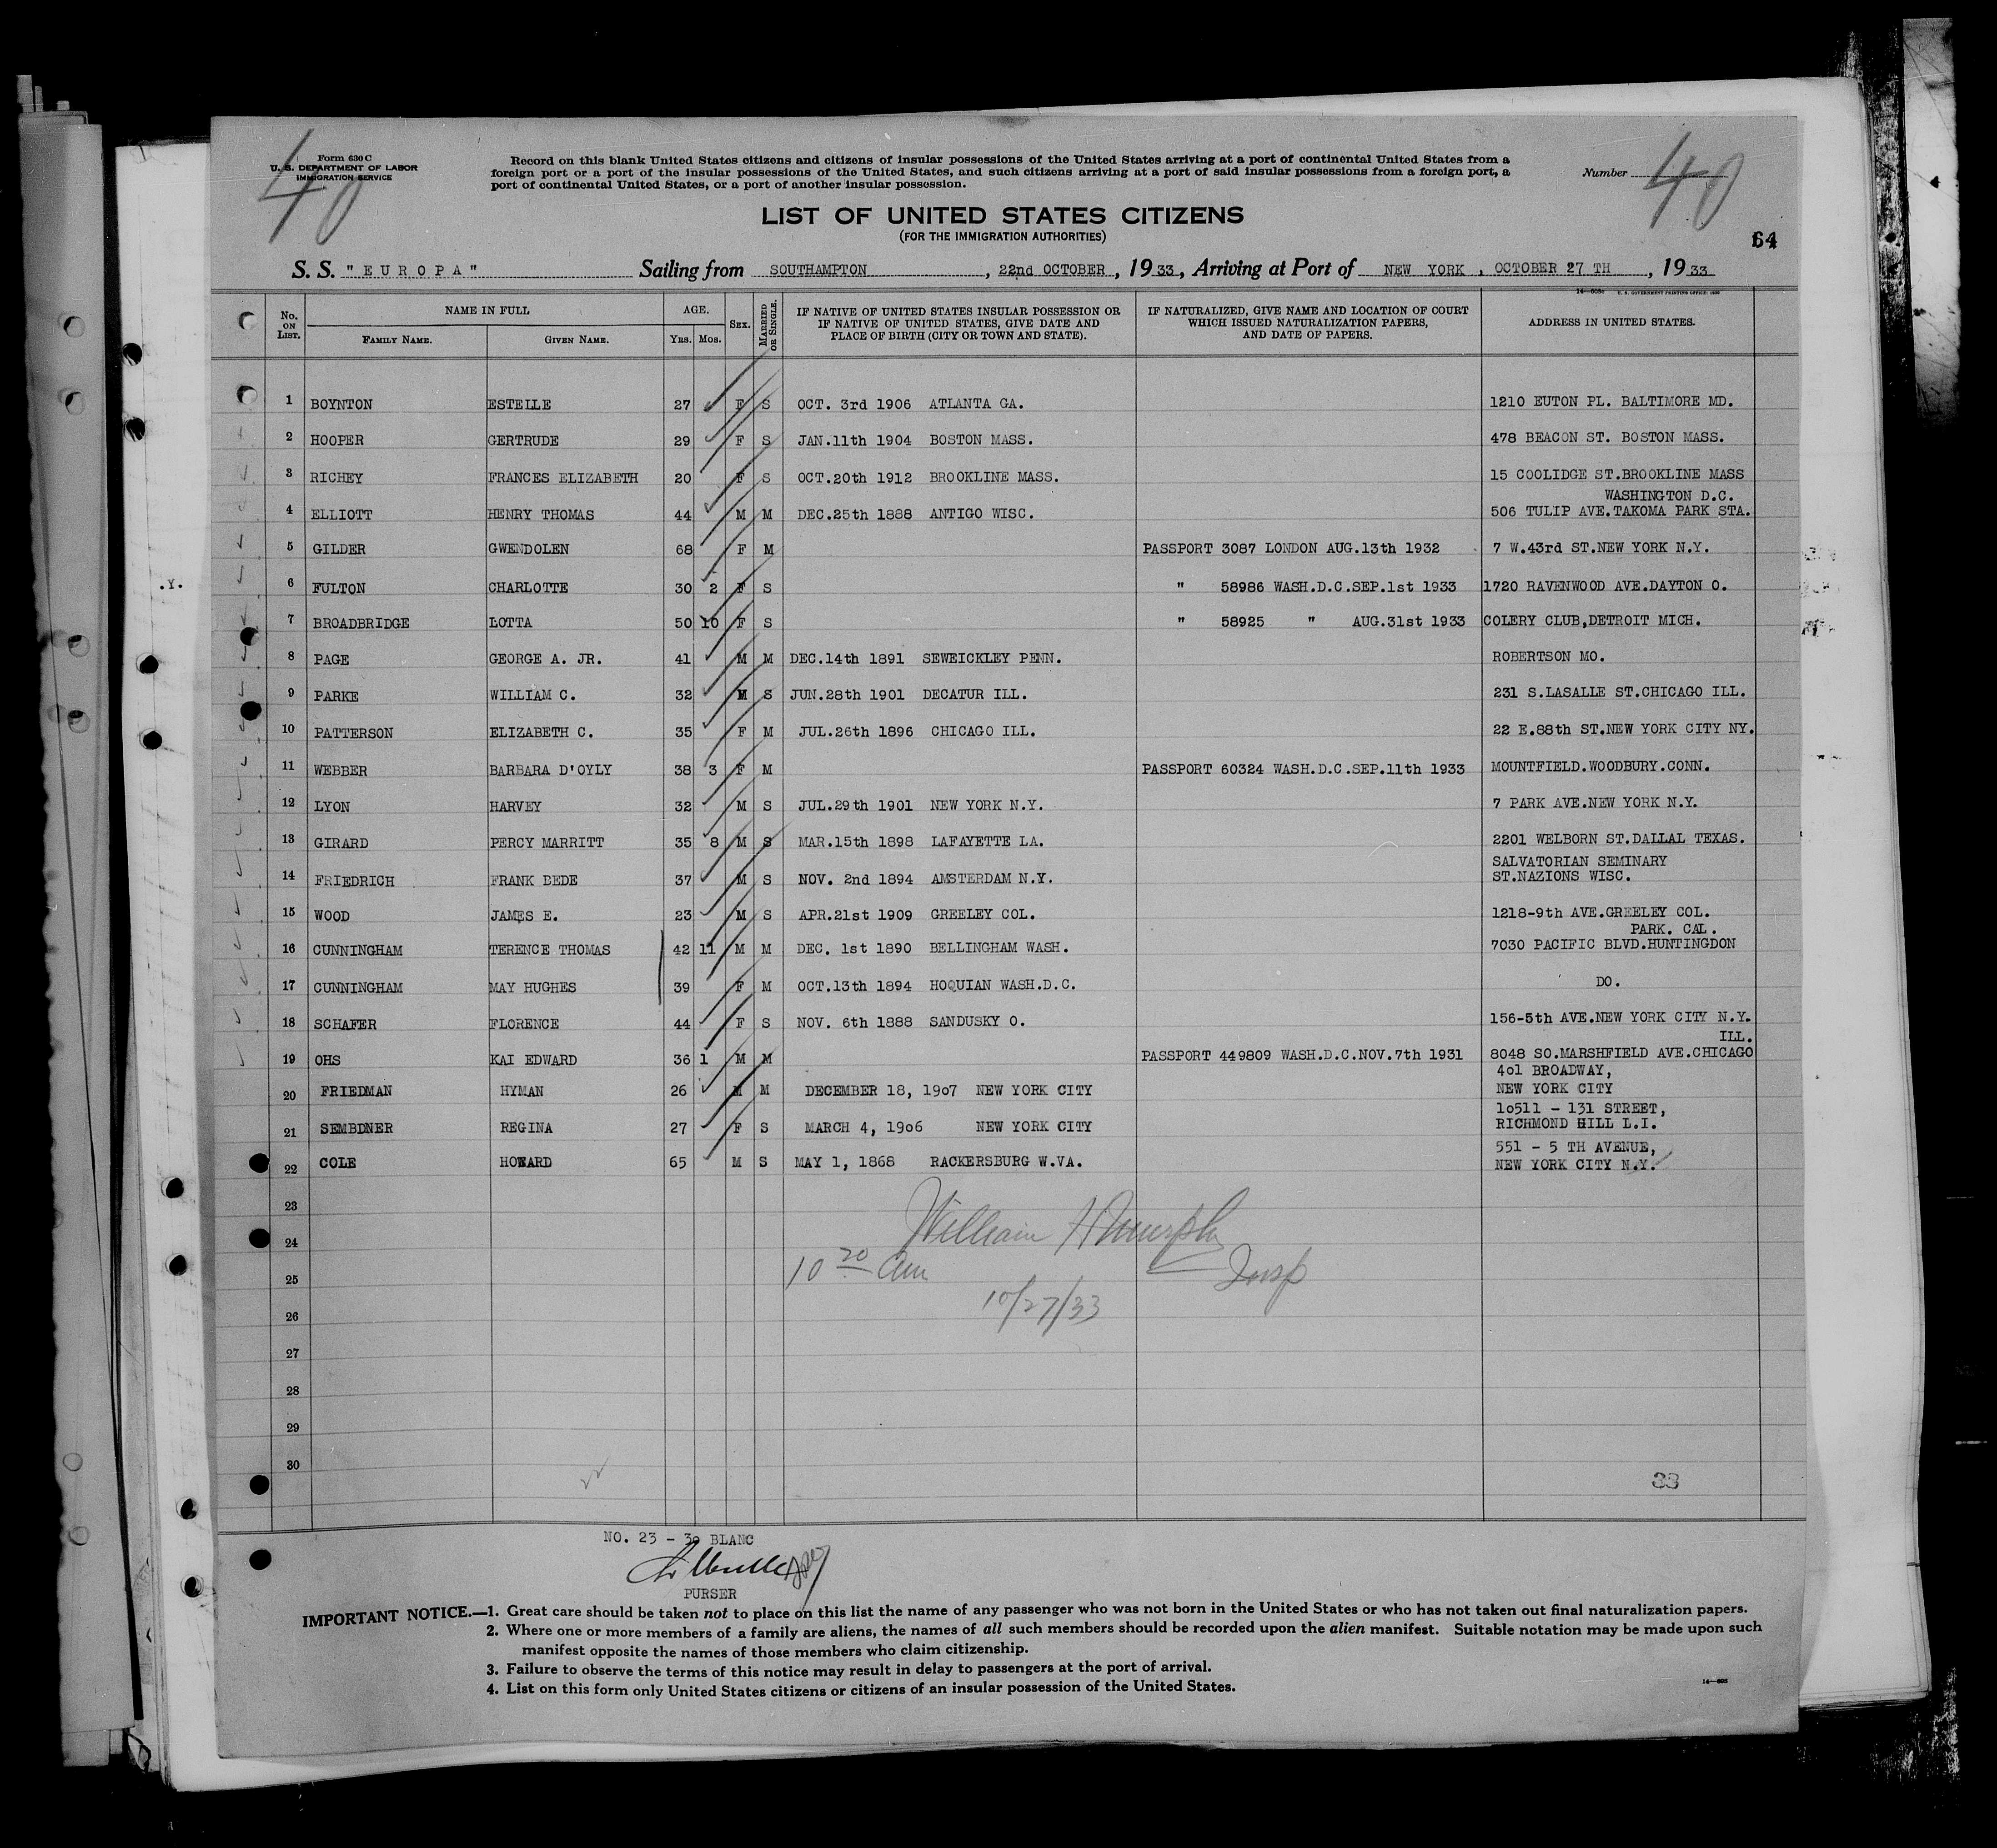 Form 630 C
U. S. DEPARTMENT OF LABOR
IMMIGRATION SERVICE
40
Record on this blank United States citizens and citizens of insular possessions of the United States arriving at a port of continental United States from a
foreign port or a port of the insular possessions of the United States, and such citizens arriving at a port of said insular possessions from a foreign port, a
port of continental United States, or a port of another insular possession.
Number 40
LIST OF UNITED STATES CITIZENS
(FOR THE IMMIGRATION AUTHORITIES)
64
S. S. "EUROPA" Sailing from SOUTHAMPTON, 22nd OCTOBER, 1933, Arriving at Port of NEW YORK, OCTOBER 27 TH, 1933
No. ON LIST. NAME IN FULL FAMILY NAME. GIVEN NAME. AGE. YRS. MOS. SEX. MARRIED OR SINGLE. IF NATIVE OF UNITED STATES INSULAR POSSESSION OR IF NATIVE OF UNITED STATES, GIVE DATE AND PLACE OF BIRTH (CITY OR TOWN AND STATE). IF NATURALIZED, GIVE NAME AND LOCATION OF COURT WHICH ISSUED NATURALIZATION PAPERS, AND DATE OF PAPERS. ADDRESS IN UNITED STATES.
1 BOYNTON ESTELLE 27 F S OCT. 3rd 1906 ATLANTA GA. 1210 EUTON PL. BALTIMORE MD.
2 HOOPER GERTRUDE 29 F S JAN.11th 1904 BOSTON MASS. 478 BEACON ST. BOSTON MASS.
3 RICHEY FRANCES ELIZABETH 20 F S OCT.20th 1912 BROOKLINE MASS. 15 COOLIDGE ST.BROOKLINE MASS
WASHINGTON D.C.
4 ELLIOTT HENRY THOMAS 44 M M DEC.25th 1888 ANTIGO WISC. 506 TULIP AVE.TAKOMA PARK STA.
5 GILDER GWENDOLEN 68 F M PASSPORT 3087 LONDON AUG.13th 1932 7 W.43rd ST.NEW YORK N.Y.
6 FULTON CHARLOTTE 30 2 F S " 58986 WASH.D.C.SEP.1st 1933 1720 RAVENWOOD AVE.DAYTON O.
7 BROADBRIDGE LOTTA 50 10 F S " 58925 " AUG.31st 1933 COLERY CLUB,DETROIT MICH.
8 PAGE GEORGE A. JR. 41 M M DEC.14th 1891 SEWEICKLEY PENN. ROBERTSON MO.
9 PARKE WILLIAM C. 32 M S JUN.28th 1901 DECATUR ILL. 231 S.LASALLE ST.CHICAGO ILL.
10 PATTERSON ELIZABETH C. 35 F M JUL.26th 1896 CHICAGO ILL. 22 E.88th ST.NEW YORK CITY NY.
11 WEBBER BARBARA D'OYLY 38 3 F M PASSPORT 60324 WASH.D.C.SEP.11th 1933 MOUNTFIELD.WOODBURY.CONN.
12 LYON HARVEY 32 M S JUL.29th 1901 NEW YORK N.Y. 7 PARK AVE.NEW YORK N.Y.
13 GIRARD PERCY MARRITT 35 8 M S MAR.15th 1898 LAFAYETTE LA. 2201 WELBORN ST.DALLAL TEXAS.
SALVATORIAN SEMINARY
14 FRIEDRICH FRANK BEDE 37 M S NOV. 2nd 1894 AMSTERDAM N.Y. ST.NAZIONS WISC.
15 WOOD JAMES E. 23 M S APR.21st 1909 GREELEY COL. 1218-9th AVE.GREELEY COL.
PARK. CAL.
16 CUNNINGHAM TERENCE THOMAS 42 11 M M DEC. 1st 1890 BELLINGHAM WASH. 7030 PACIFIC BLVD.HUNTINGDON
17 CUNNINGHAM MAY HUGHES 39 F M OCT.13th 1894 HOQUIAN WASH.D.C. DO.
18 SCHAFER FLORENCE 44 F S NOV. 6th 1888 SANDUSKY O. 156-5th AVE.NEW YORK CITY N.Y.
ILL.
19 OHS KAI EDWARD 36 1 M M PASSPORT 449809 WASH.D.C.NOV.7th 1931 8048 SO.MARSHFIELD AVE.CHICAGO
401 BROADWAY,
20 FRIEDMAN HYMAN 26 M M DECEMBER 18, 1907 NEW YORK CITY NEW YORK CITY
10511 - 131 STREET,
21 SEMBDNER REGINA 27 F S MARCH 4, 1906 NEW YORK CITY RICHMOND HILL L.I.
551 - 5 TH AVENUE,
22 COLE HOWARD 65 M S MAY 1, 1868 RACKERSBURG W.VA. NEW YORK CITY N.Y.
23
William H Murphy
24
10 20 am Insp
25
10/27/33
26
27
28
29
30
33
NO. 23 - 30 BLANC
PURSER
IMPORTANT NOTICE.—1. Great care should be taken not to place on this list the name of any passenger who was not born in the United States or who has not taken out final naturalization papers.
2. Where one or more members of a family are aliens, the names of all such members should be recorded upon the alien manifest. Suitable notation may be made upon such
manifest opposite the names of those members who claim citizenship.
3. Failure to observe the terms of this notice may result in delay to passengers at the port of arrival.
4. List on this form only United States citizens or citizens of an insular possession of the United States.
.Y.